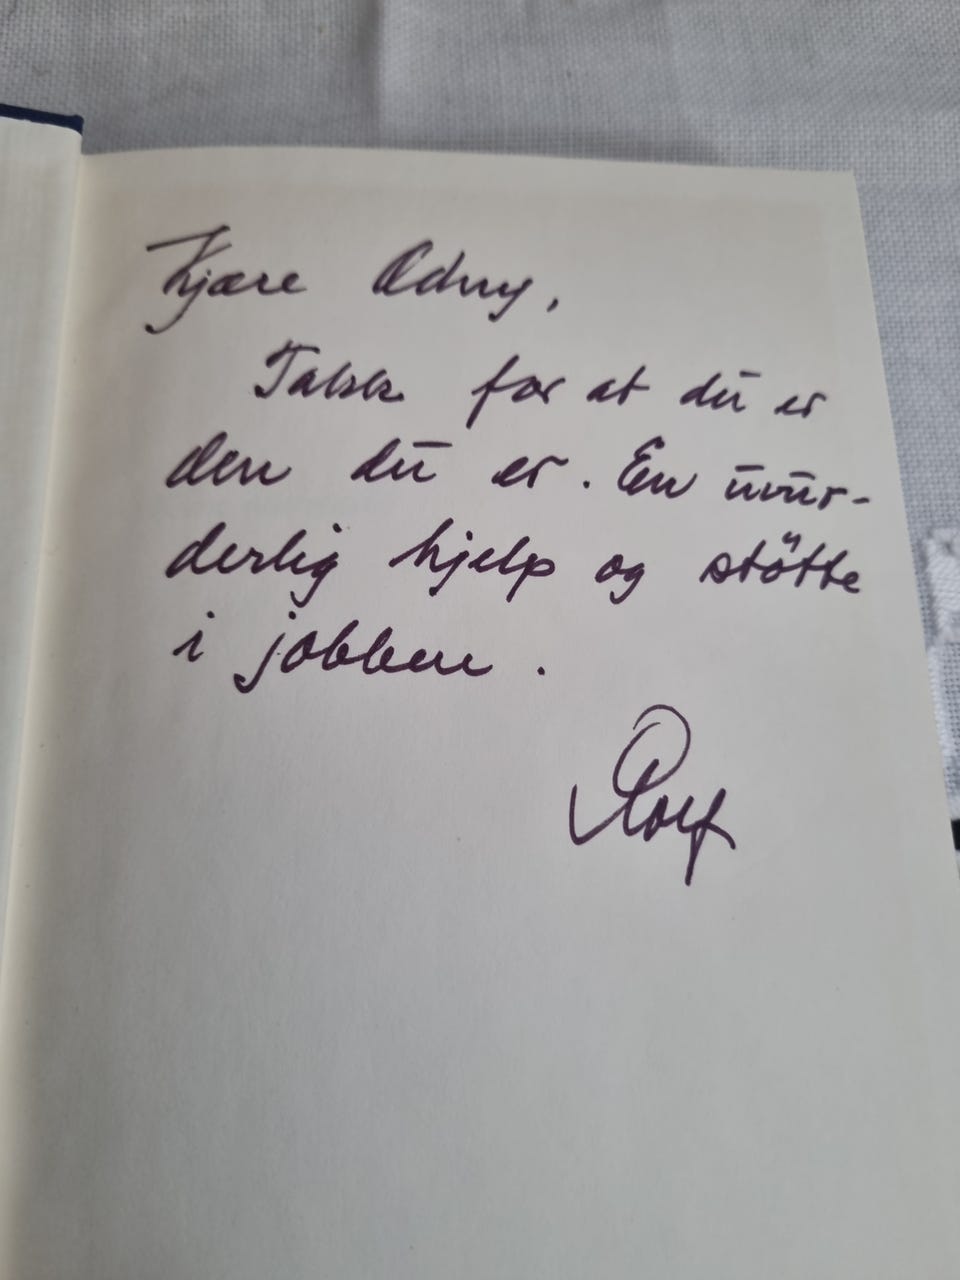 Kjære Odny,
Takk for at du er
den du er. En uvur-
derlig hjelp og stötte
i jobben.
Rolf